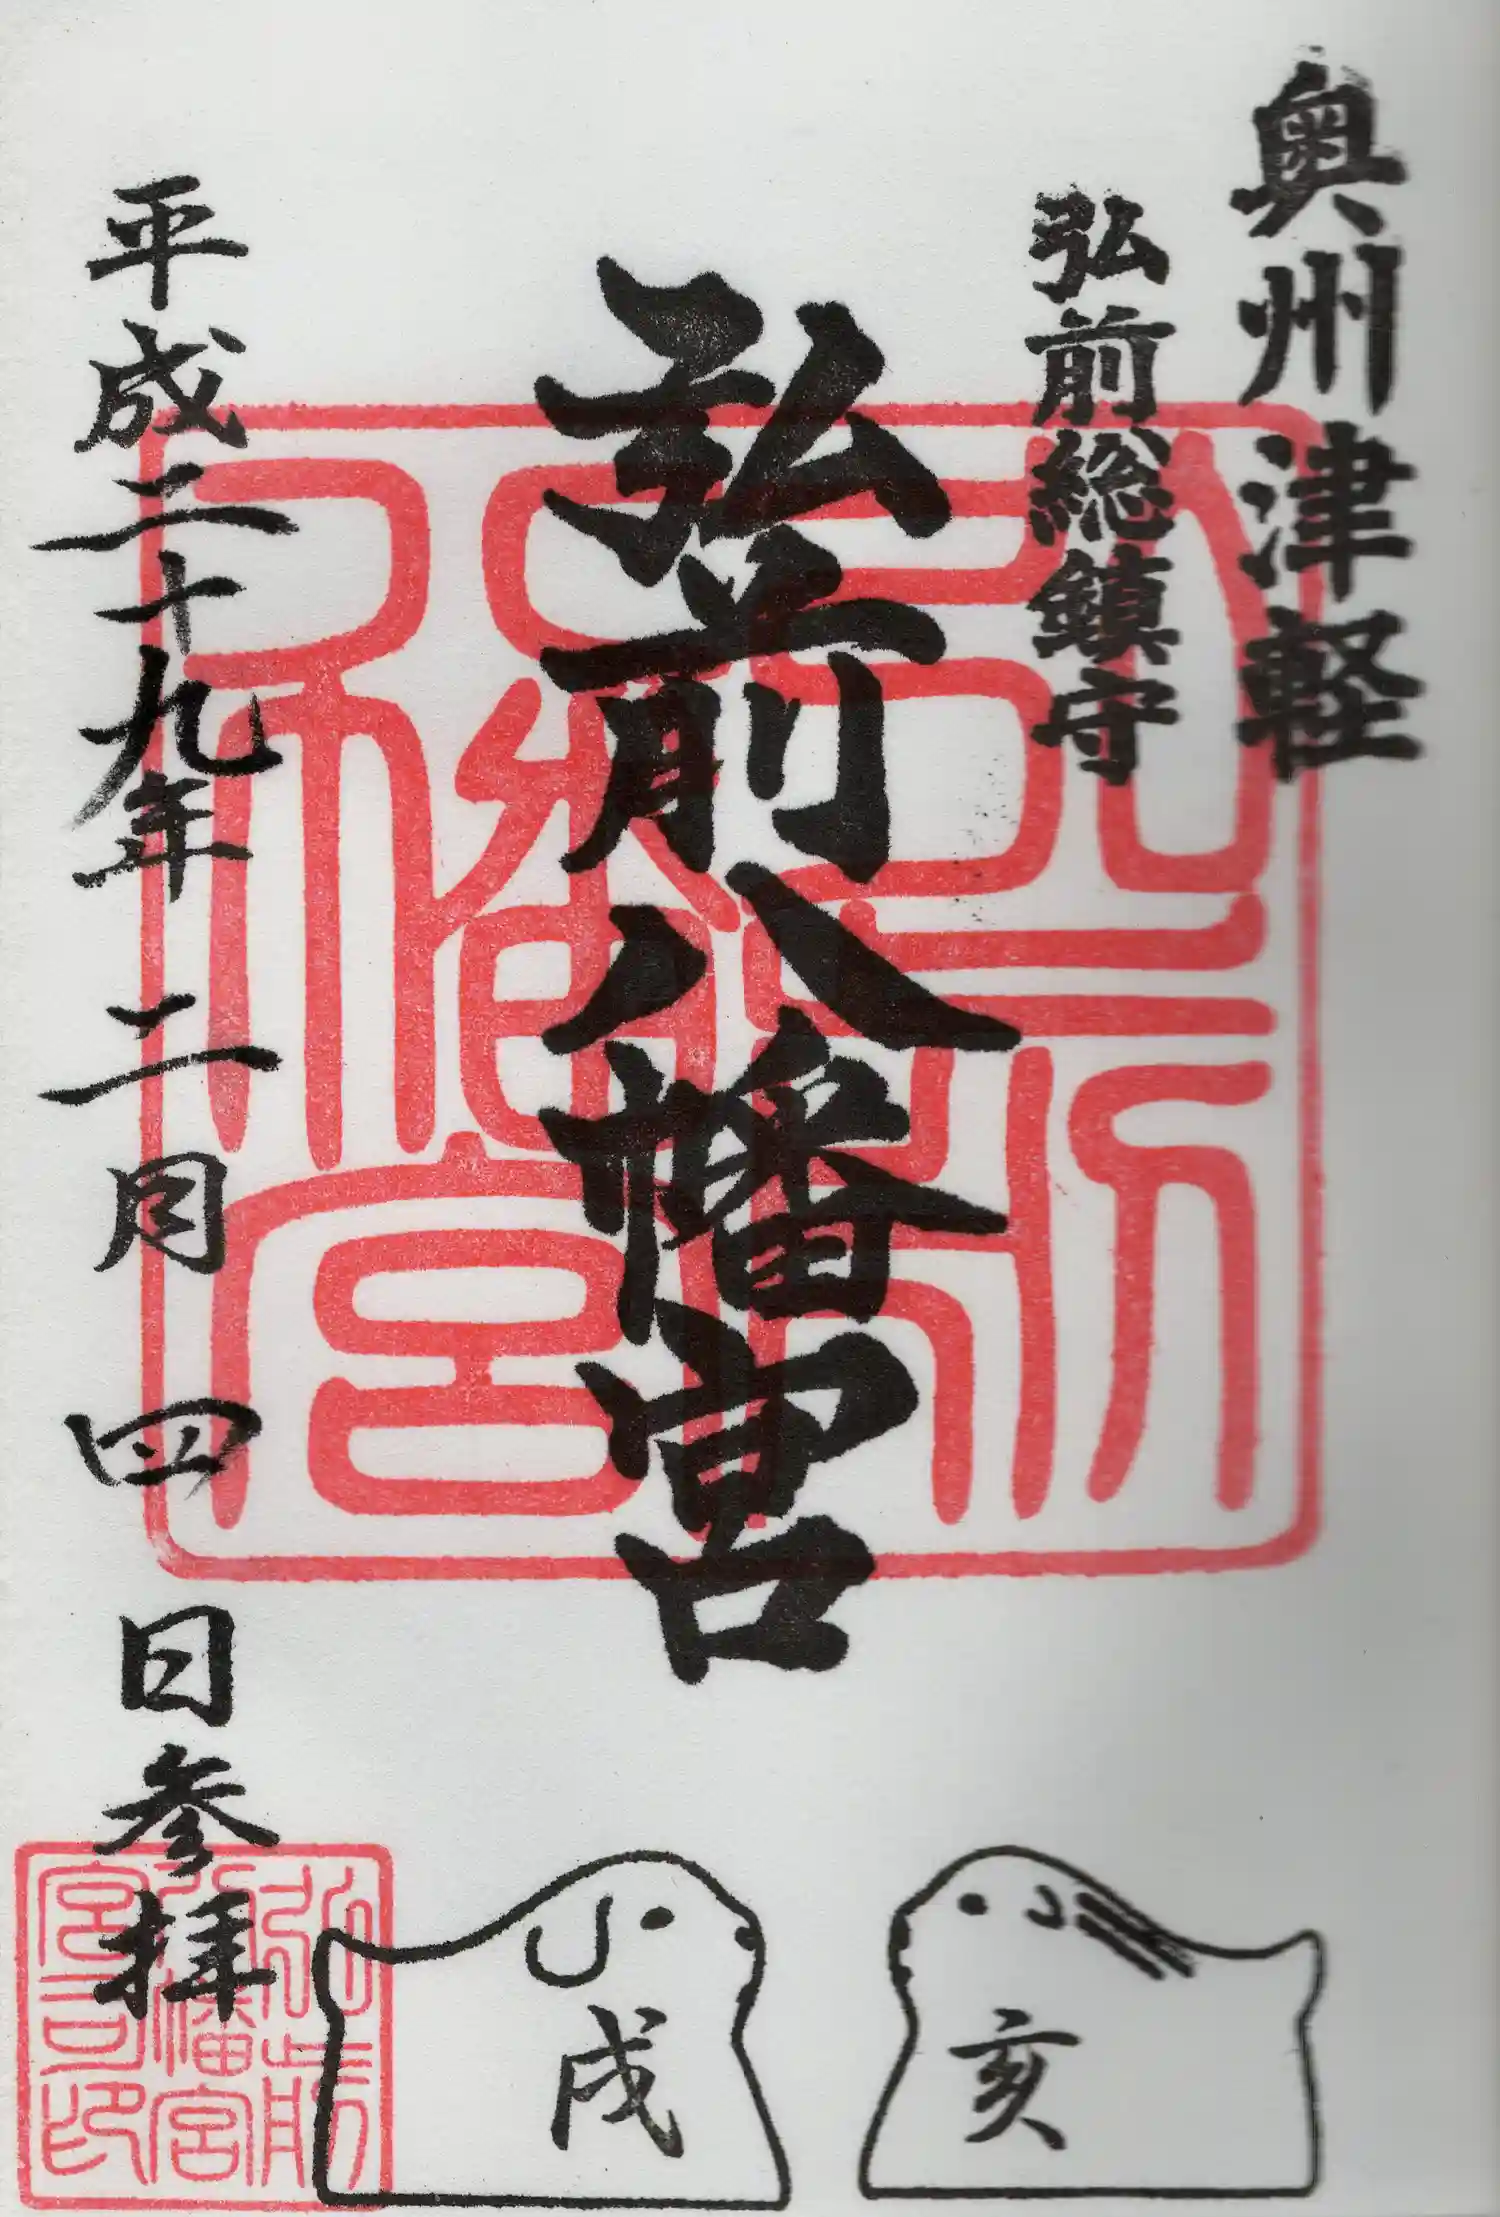 奥州津軽
弘前総鎮守
弘前八幡宮
平成二十九年二月四日参拝
亥
戌
弘前八幡宮
弘前八幡宮宮司印